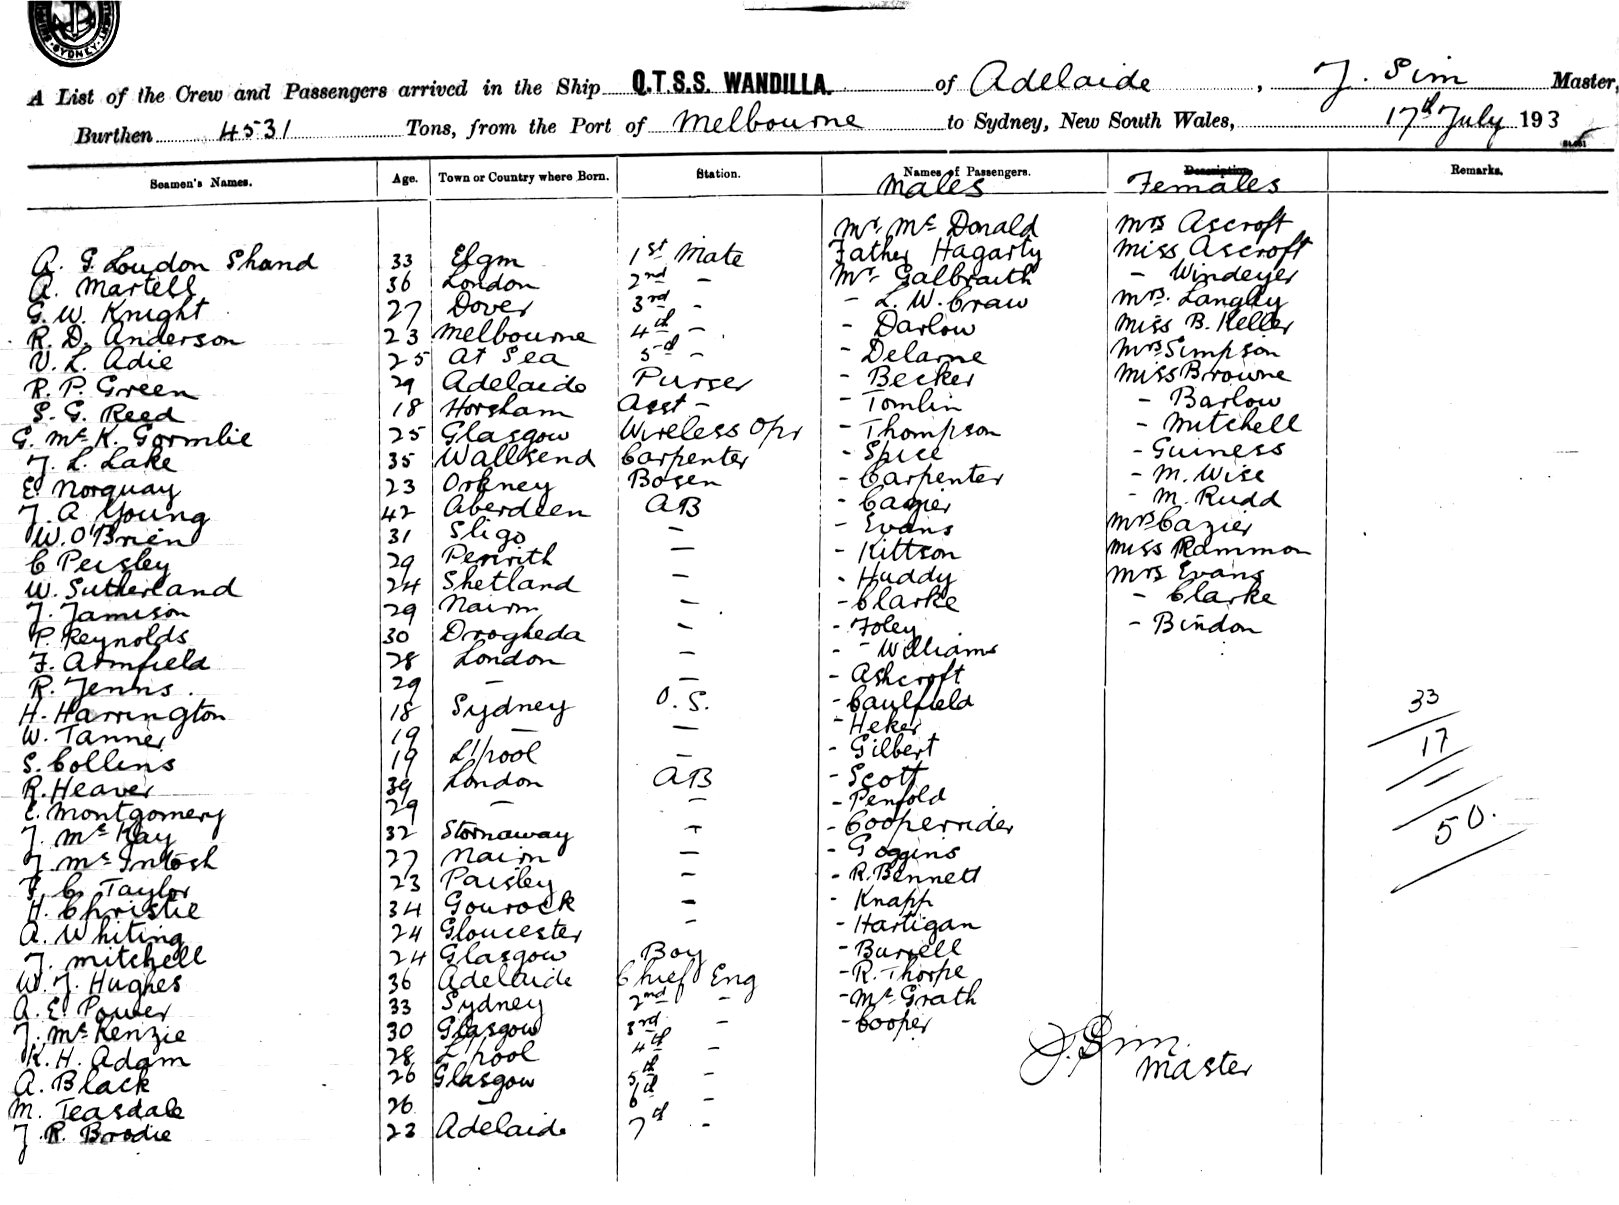 SYDNEY
A List of the Crew and Passengers arrived in the Ship Q.T.S.S. WANDILLA. of Adelaide, J. Sim Master,
Burthen 4531 Tons, from the Port of Melbourne to Sydney, New South Wales, 17th July 193
Seamen's Names. Age. Town or Country where Born. Station. Names of Passengers. Description Remarks.
Males Females
Mr. Mc Donald Mrs Ascroft
A. G. Loudon Shand 33 Elgin 1st Mate Father Hagarty Miss Ascroft
A. Martell 36 London 2nd - Mr. Galbraith - Windeyer
G. W. Knight 27 Dover 3rd - - L. W. Craw Mrs. Langley
R. D. Anderson 23 Melbourne 4th - - Darlow Miss B. Keller
V. L. Adie 25 At Sea 5th - - Delarne Mrs Simpson
R. P. Green 29 Adelaide Purser - Becker Miss Browne
S. G. Reed 18 Horsham Asst - - Tomlin - Barlow
G. Mc K. Gormlie 25 Glasgow Wireless Opr - Thompson - Mitchell
J. L. Lake 35 Wallsend Carpenter - Spice - Guiness
E. Norquay 23 Orkney Bosen - Carpenter - M. Wise
J. A Young 42 Aberdeen AB - Cazier - M. Rudd
W. O'Brien 31 Sligo - - Evans Mrs Cazier
C Peisley 29 Penrith - - Kittson Miss Rammon
W. Sutherland 24 Shetland - - Huddy Mrs Evans
J. Jamison 29 Nairn - - Clarke - Clarke
P. Reynolds 30 Drogheda - - Foley - Bindon
F. Armfield 28 London - - - Williams
R. Jenns. 29 - - - Ashcroft
H. Harrington 18 Sydney O.S. - Caulfield 33
W. Tanner 19 - - - Heker
S. Collins 19 L'pool - - Gilbert 17
R. Heaver 39 London AB - Scott
E. Montgomery 29 - - - Penfold
J. Mc Kay 32 Stornaway - - Cooperrider 50.
J. Mc Intosh 27 Nairn - - Goggins
F. C. Taylor 23 Paisley - - R. Bennett
H. Christie 34 Gourock - - Knapp
A. Whiting 24 Gloucester - - Hartigan
J. Mitchell 24 Glasgow Boy - Burrell
W. J. Hughes 36 Adelaide Chief Eng - R. Thorpe
A. E. Power 33 Sydney 2nd - - Mc Grath
J. Mc Kenzie 30 Glasgow 3rd - - Cooper
K. H. Adam 28 L'pool 4th - J. Sim.
A. Black 26 Glasgow 5th - Master
M. Teasdale 26 - 6th -
J. R. Brodie 23 Adelaide 7th -